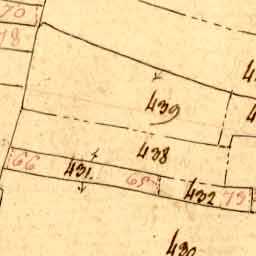 70
78
439
438
66
431.
65
432
73
430